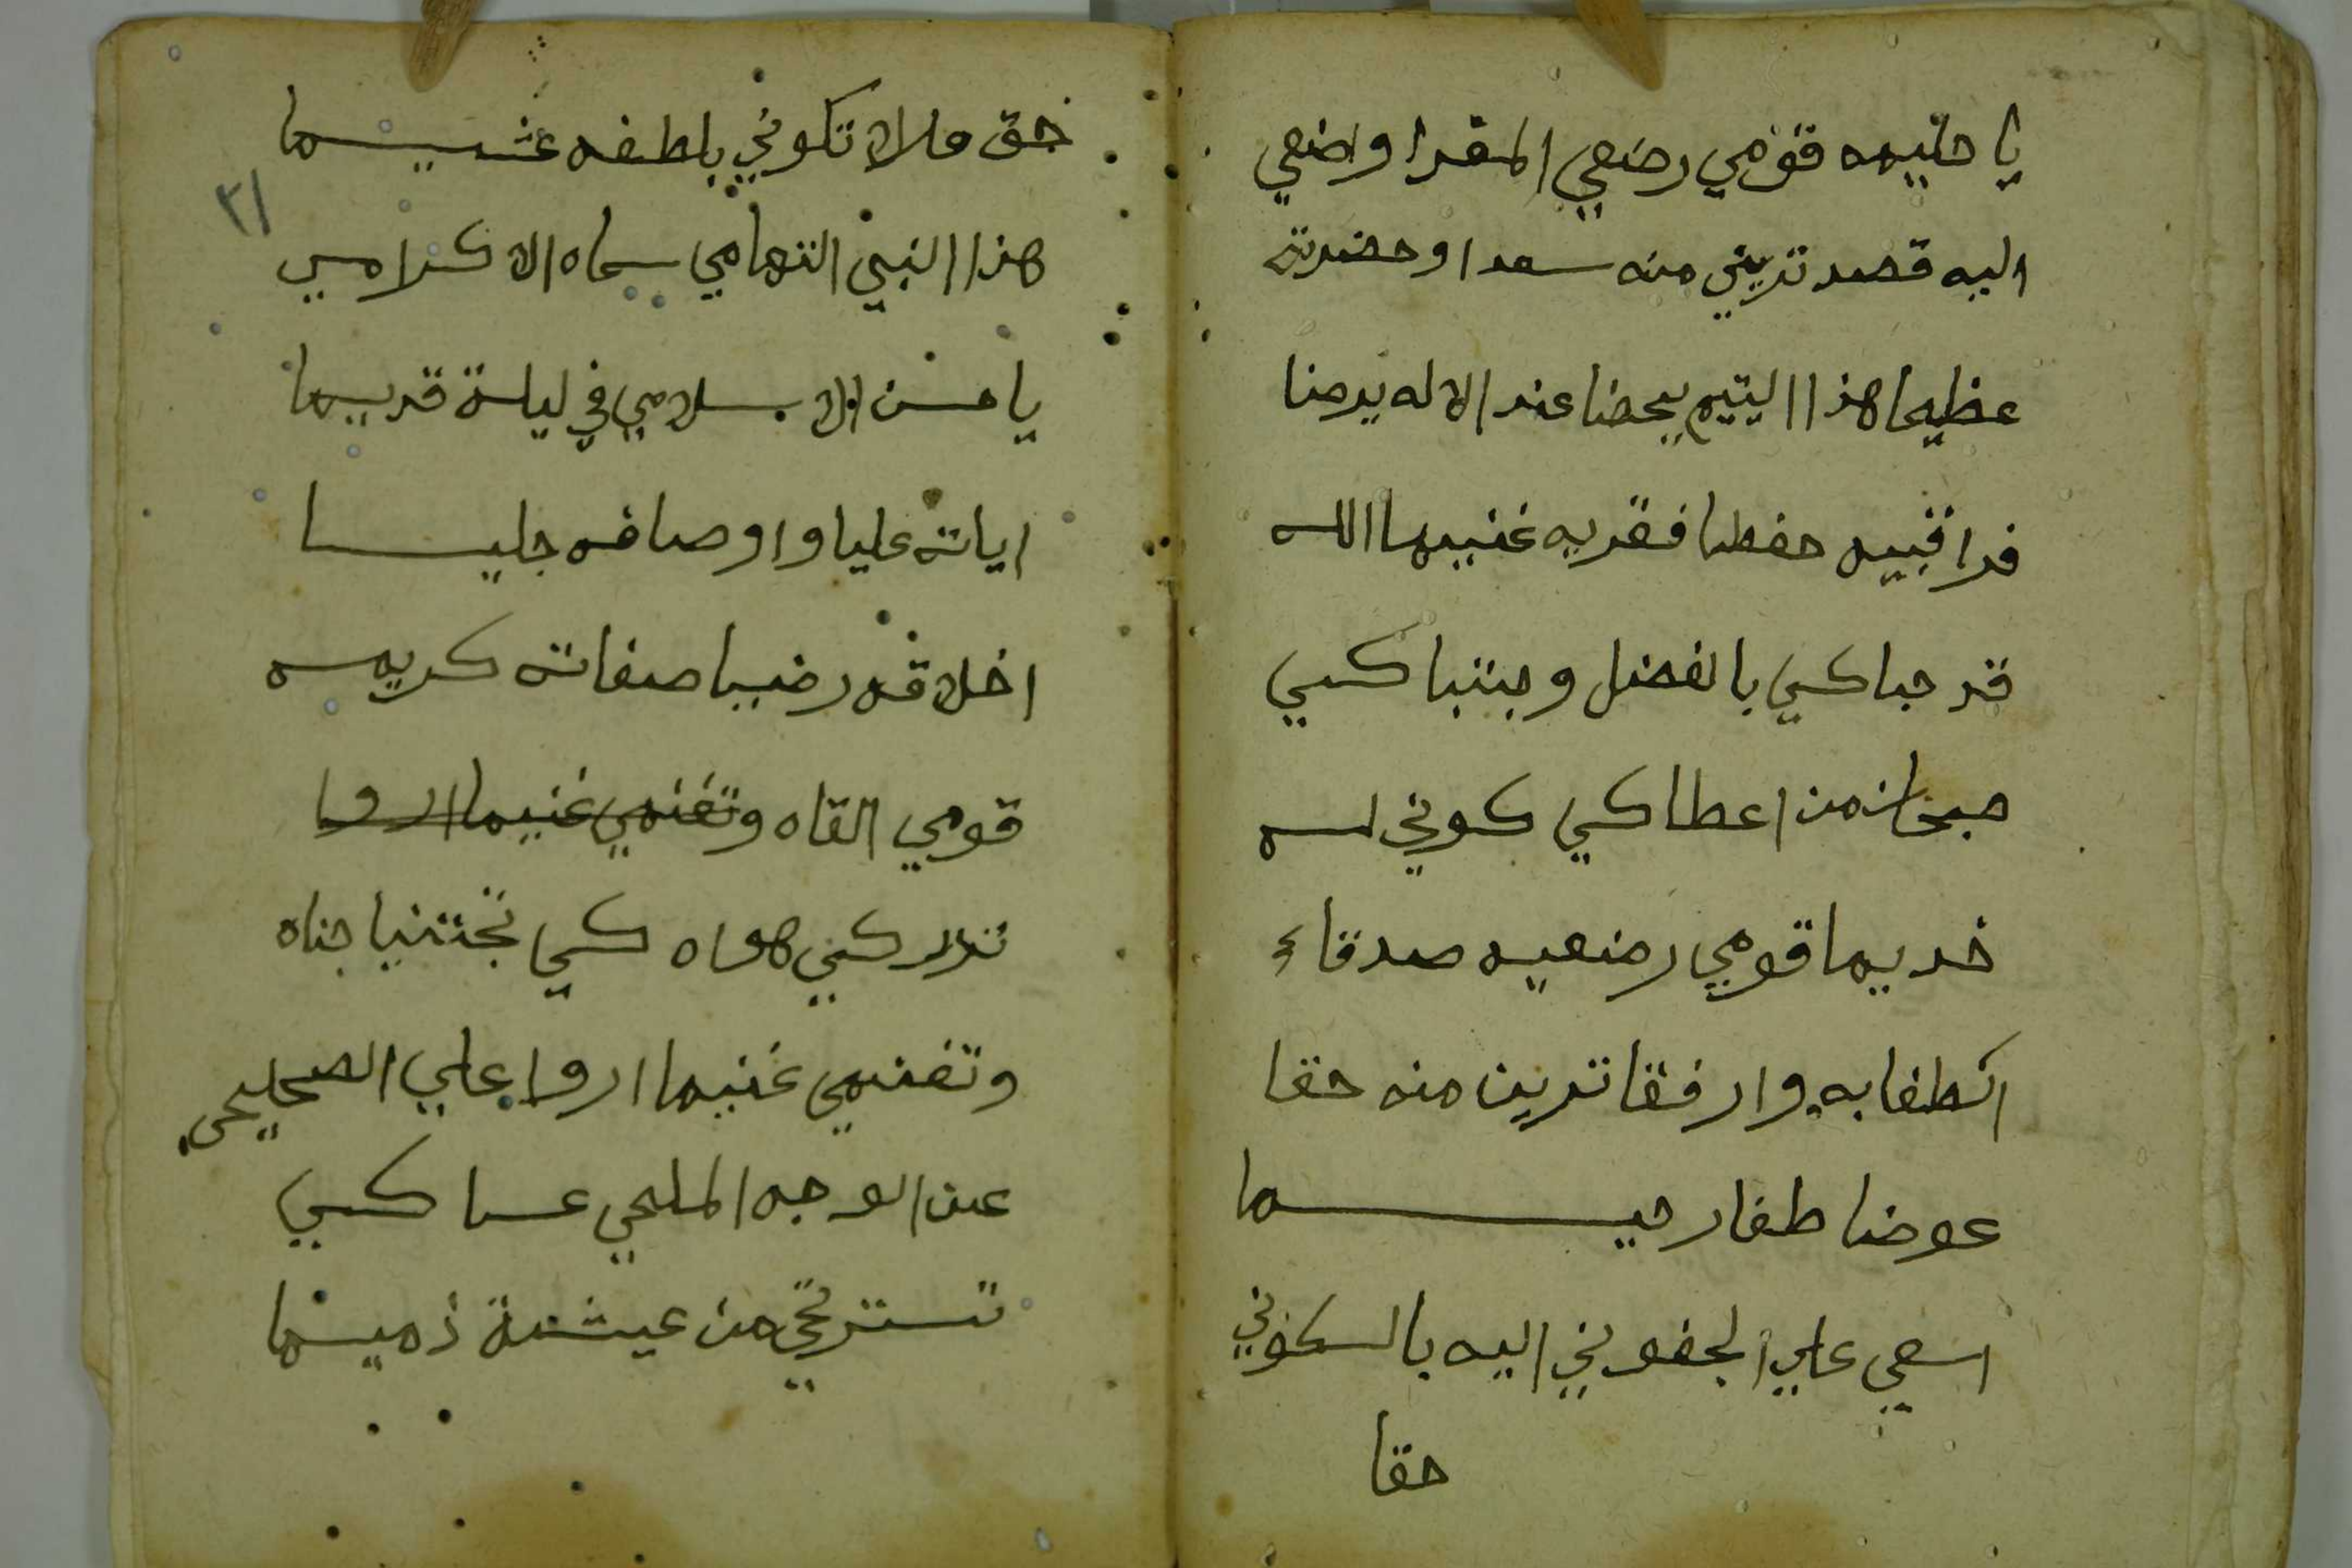 يا حليمه قومي رضعي المقرا واضعي
اليه قصد تريني منه سعدا وحضرته
عظيما هذا اليتيم يحضنا عند الاله يرضنا
فراقبيه حفظا فقربه غنيما الله
قد حباكي بالفضل وجتباكي
صبحان من اعطاكي كوني له
خديما قومي رضعيه صدقاء
الطفا به وارفقا ترين منه حقا
عوضا طفا رحيما
اسعي علي الجفوني اليه بالسكوني
حقا
حق ملا لا تكوني بلطفه غشيما
٣١
هذا النبي التهامي سماه الا كرامي
يا حسن الا سلامي في ليلة قديما
اياته عليا واوصافه جليا
اخلاقه رضيا صفاته كريمه
قومي القاه وتغنمي غنيما اروا
تدركني هواه كي تجتنيا جناه
وتغنمي غنيما اروا علي الصحيحي
عن الوجه المليحي عساكي
تستريحي من عيشة ذميما